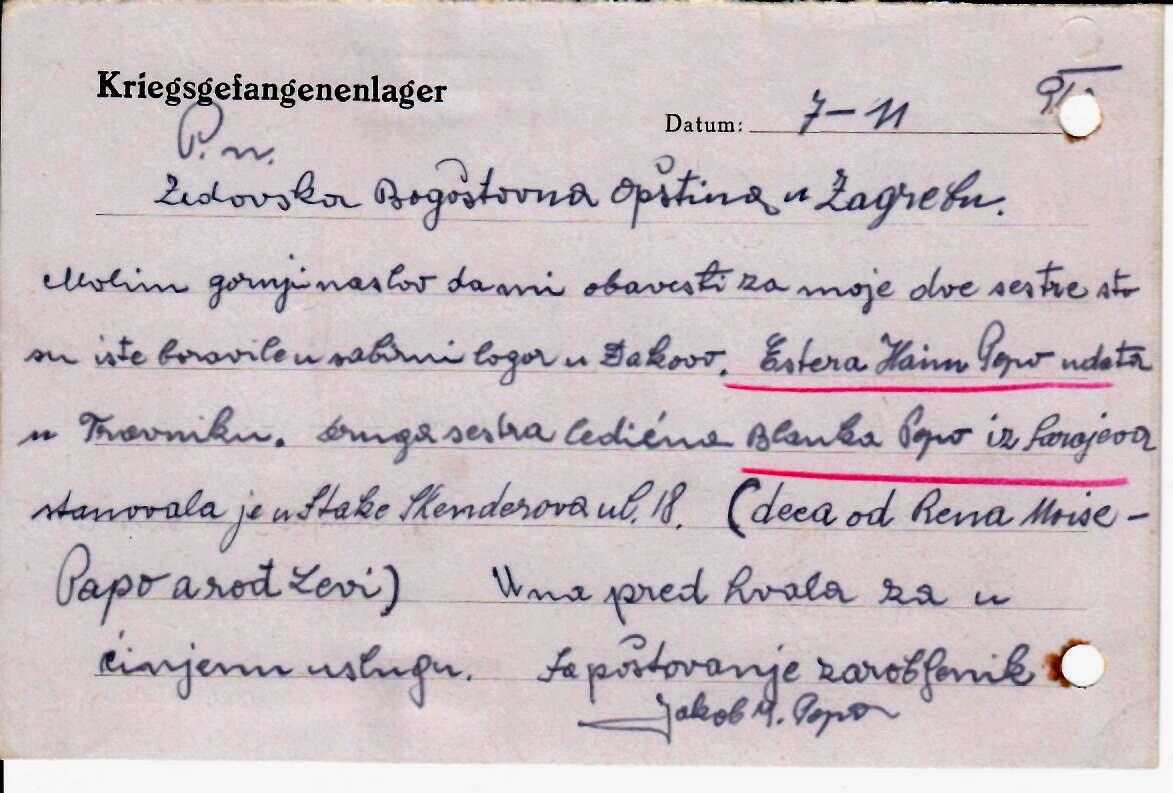 Kriegsgefangenenlager
Datum: 7-11
P. n.
Židovska Bogoštovna Opština u Zagrebu.
Molim gornji naslov da mi obavesti za moje dve sestre što
su iste boravile u sabirni logor u Đakovo. Estera Haim Papo udata
u Travniku. druga sestra ledična Blanka Papo iz Sarajeva
stanovala je u Stake Skenderova ul. 18. (deca od Rena Moise-
Papo a rođ Levi) U na pred hvala za u
činjenu uslugu. Sa poštovanje zarobljenik
Jakob M. Papo